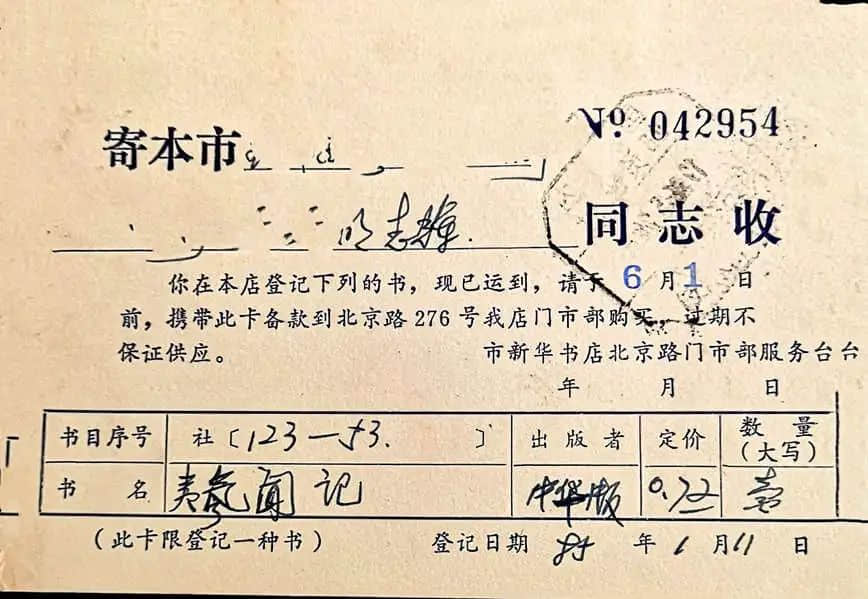 № 042954
寄本市
志辉 同志收
你在本店登记下列的书，现已运到，请于 6 月 1 日
前，携带此卡备款到北京路276号我店门市部购买，过期不
保证供应。 市新华书店北京路门市部服务台台
年 月 日
书目序号 社〔123—53. 〕 出版者 定价 数量（大写）
书名 夷氛闻记 中华版 0.72 壹
（此卡限登记一种书） 登记日期 85 年 1 月 11 日